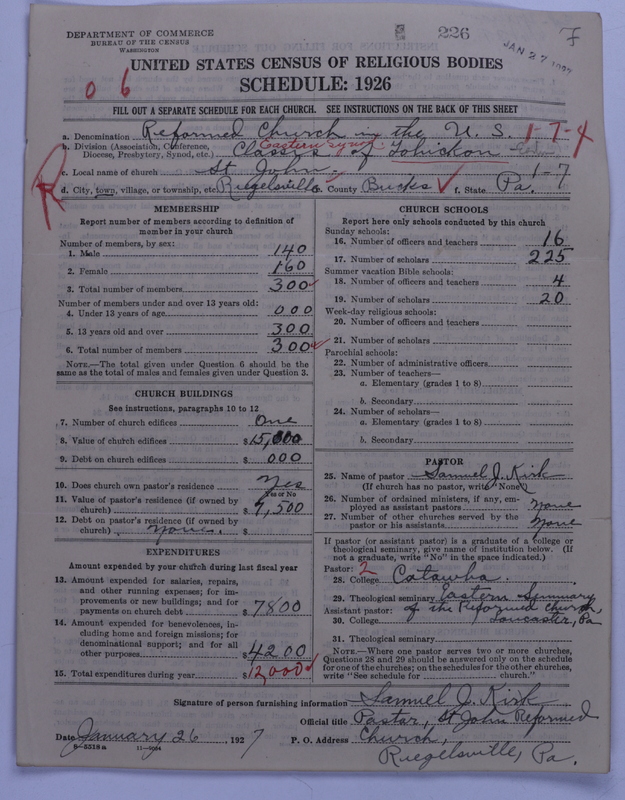 DEPARTMENT OF COMMERCE
BUREAU OF THE CENSUS
WASHINGTON
226
7
JAN 27
UNITED STATES CENSUS OF RELIGIOUS BODIES
SCHEDULE: 1926
0 6
FILL OUT A SEPARATE SCHEDULE FOR EACH CHURCH. SEE INSTRUCTIONS ON THE BACK OF THIS SHEET
a. Denomination Reformed Church in the U. S. 1-7-4
b. Division (Association, Conference, Diocese, Presbytery, Synod, etc.) Eastern Synod. Classis of Tohickon
c. Local name of church St John 1-7
d. City, town, village, or township, etc. Riegelsville e. County Bucks f. State Pa.
R
MEMBERSHIP
Report number of members according to definition of member in your church
Number of members, by sex:
1. Male 140
2. Female 160
3. Total number of members 300
Number of members under and over 13 years old:
4. Under 13 years of age 000
5. 13 years old and over 300
6. Total number of members 300
NOTE.—The total given under Question 6 should be the same as the total of males and females given under Question 3.
CHURCH BUILDINGS
See instructions, paragraphs 10 to 12
7. Number of church edifices One
8. Value of church edifices $15,000
9. Debt on church edifices $000
10. Does church own pastor's residence Yes
Yes or No
11. Value of pastor's residence (if owned by church) $7,500
12. Debt on pastor's residence (if owned by church) None. $
EXPENDITURES
Amount expended by your church during last fiscal year
13. Amount expended for salaries, repairs, and other running expenses; for improvements or new buildings; and for payments on church debt $7800
14. Amount expended for benevolences, including home and foreign missions; for denominational support; and for all other purposes $4200
15. Total expenditures during year $12,000
CHURCH SCHOOLS
Report here only schools conducted by this church
Sunday schools:
16. Number of officers and teachers 16
17. Number of scholars 225
Summer vacation Bible schools:
18. Number of officers and teachers 4
19. Number of scholars 20
Week-day religious schools:
20. Number of officers and teachers
21. Number of scholars
Parochial schools:
22. Number of administrative officers
23. Number of teachers—
a. Elementary (grades 1 to 8)
b. Secondary
24. Number of scholars—
a. Elementary (grades 1 to 8)
b. Secondary
PASTOR
25. Name of pastor Samuel J. Kirk
(If church has no pastor, write "None")
26. Number of ordained ministers, if any, employed as assistant pastors None
27. Number of other churches served by the pastor or his assistants None
If pastor (or assistant pastor) is a graduate of a college or theological seminary, give name of institution below. (If not a graduate, write "No" in the space indicated.)
Pastor: 2
28. College Catawba.
29. Theological seminary Eastern Seminary
Assistant pastor: of the Reformed Church,
30. College Lancaster, Pa
31. Theological seminary
NOTE.—Where one pastor serves two or more churches, Questions 28 and 29 should be answered only on the schedule for one of the churches; on the schedule for the other churches, write "See schedule for church."
Signature of person furnishing information Samuel J. Kirk
Official title Pastor, St John Reformed
Date January 26, 1927 P. O. Address Church,
8-5518a 11-9064
Riegelsville, Pa.